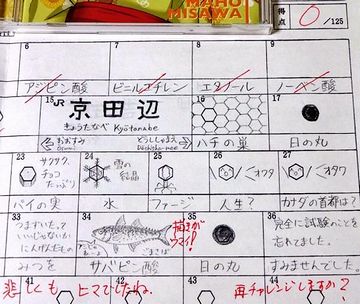 MAHO
MISAWA
得点 0 /125
6
7
8
9
アジピン酸
ビニルエチレン
エタノール
ノーベン酸
15
JR 京田辺
きょうたなべ Kyōtanabe
おおすみ
Osumi
どうししゃまえ
Dōshisha-mae
16
17
ハチの巣
日の丸
23
サクサク、
チョコ
たっぷり
24
雪の
結晶
25
26
/オワタ
27
/オタワ
パイの実
水
ファージ
人生?
カナダの首都は?
33
つまずいたって
いいじゃないか
にんげんだもの
34
ごまさば
描き方
ウマイ!
35
36
完全に試験のことを
忘れてました。
みつを
サバピン酸
日の丸
すみませんでした。
41
42
43
44
悲しくも
ヒマでしたね。
再チャレンジしますか?